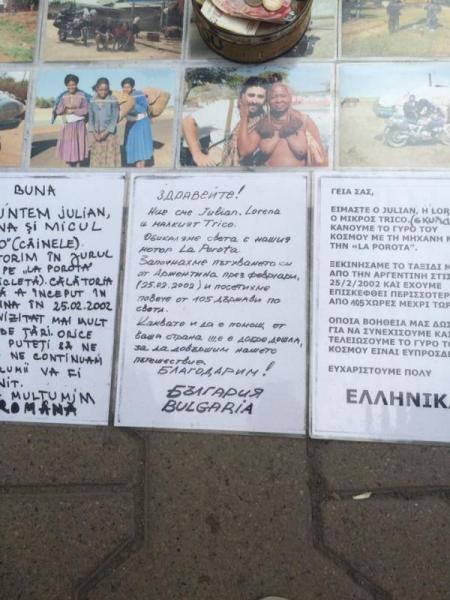 BUNA
UNTEM JULIAN,
NA ŞI MICUL
O" (CÂINELE).
TORIM ÎN JURUL
PE "LA POROTA"
CLETA). CĂLĂTORIA
Ă A ÎNCEPUT ÎN
INA ÎN 25.02.2002
VIZITAT MAI MULT
DE ŢĂRI. ORICE
PUTEŢI SĂ NE
NE CONTINUAM
LUMII VA FI
NIT.
MULTUMIM
ROMÂNĂ
ЗДРАВЕЙТЕ!
Ние сме Julian, Lorena
и малкият Trico.
Обикаляме света с нашия
мотор La Porota.
Започнахме пътуването си
от Аржентина през февруари,
(25.02.2002) и посетихме
повече от 105 държави по
света.
Каквато и да е помощ от
ваша страна ще е добре дошла,
за да довършим нашето
пътешествие.
БЛАГОДАРИМ!
БЪЛГАРИЯ
BULGARIA
ΓΕΙΑ ΣΑΣ,
ΕΙΜΑΣΤΕ Ο JULIAN, Η LOR
Ο ΜΙΚΡΟΣ TRICO. (ΣΚΥΛΟ
ΚΑΝΟΥΜΕ ΤΟ ΓΥΡΟ ΤΟΥ
ΚΟΣΜΟΥ ΜΕ ΤΗ ΜΗΧΑΝΗ Μ
ΤΗΝ «LA POROTA».
ΞΕΚΙΝΗΣΑΜΕ ΤΟ ΤΑΞΙΔΙ ΜΑΣ
ΑΠΟ ΤΗΝ ΑΡΓΕΝΤΙΝΗ ΣΤΙΣ
25/2/2002 ΚΑΙ ΕΧΟΥΜΕ
ΕΠΙΣΚΕΦΘΕΙ ΠΕΡΙΣΣΟΤΕΡ
ΑΠΟ 105 ΧΩΡΕΣ ΜΕΧΡΙ ΤΩΡ
ΟΠΟΙΑ ΒΟΗΘΕΙΑ ΜΑΣ ΔΩΣ
ΓΙΑ ΝΑ ΣΥΝΕΧΙΣΟΥΜΕ ΚΑΙ
ΤΕΛΕΙΩΣΟΥΜΕ ΤΟ ΓΥΡΟ ΤΟ
ΚΟΣΜΟΥ ΕΙΝΑΙ ΕΥΠΡΟΣΔΕ
ΕΥΧΑΡΙΣΤΟΥΜΕ ΠΟΛΥ
ΕΛΛΗΝΙΚΑ